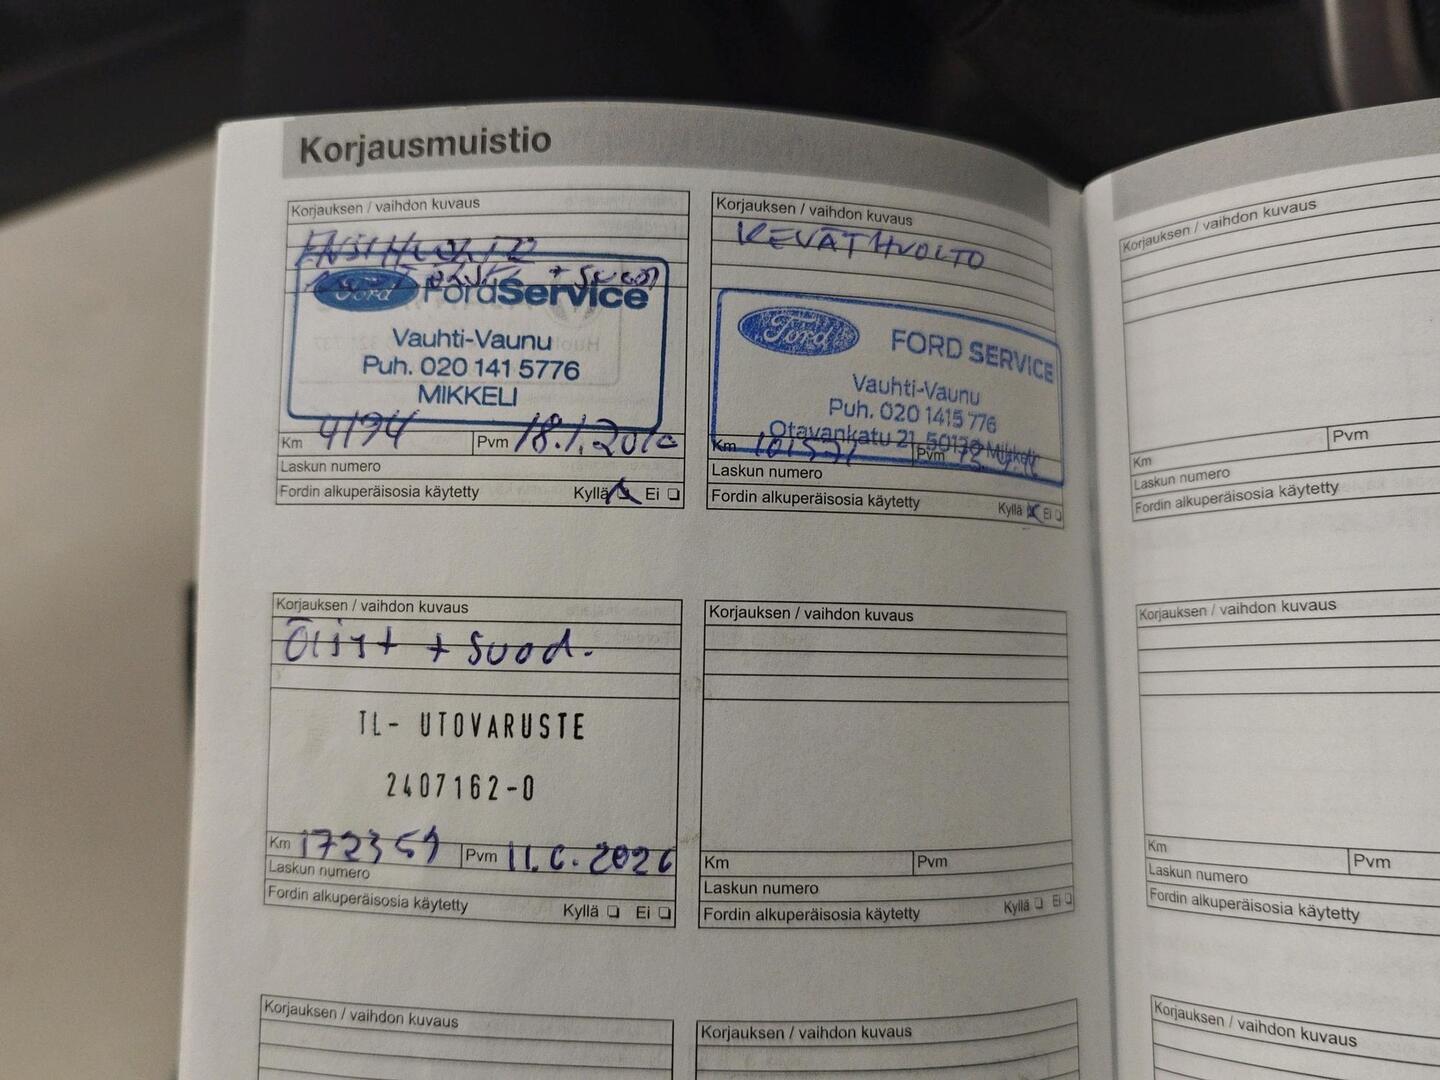 Korjausmuistio
Korjauksen / vaihdon kuvaus
ENSIHUOLTO
+ SUOD
Ford FordService
Vauhti-Vaunu
Puh. 020 141 5776
MIKKELI
Km 4194 Pvm 18.1.2010
Laskun numero
Fordin alkuperäisosia käytetty Kyllä Ei
Korjauksen / vaihdon kuvaus
KEVÄTHUOLTO
Ford FORD SERVICE
Vauhti-Vaunu
Puh. 020 1415 776
Otavankatu 21, 50130 Mikkeli
Km 101571 Pvm
Laskun numero
Fordin alkuperäisosia käytetty Kyllä Ei
Korjauksen / vaihdon kuvaus
Öljyt + suod.
TL- UTOVARUSTE
2407162-0
Km 172359 Pvm 11.6.2026
Laskun numero
Fordin alkuperäisosia käytetty Kyllä Ei
Korjauksen / vaihdon kuvaus
Km Pvm
Laskun numero
Fordin alkuperäisosia käytetty Kyllä Ei
Korjauksen / vaihdon kuvaus
Korjauksen / vaihdon kuvaus
Korjauksen / vaihdon kuvaus
Km Pvm
Laskun numero
Fordin alkuperäisosia käytetty
Korjauksen / vaihdon kuvaus
Km Pvm
Laskun numero
Fordin alkuperäisosia käytetty
Korjauksen / vaihdon kuvaus